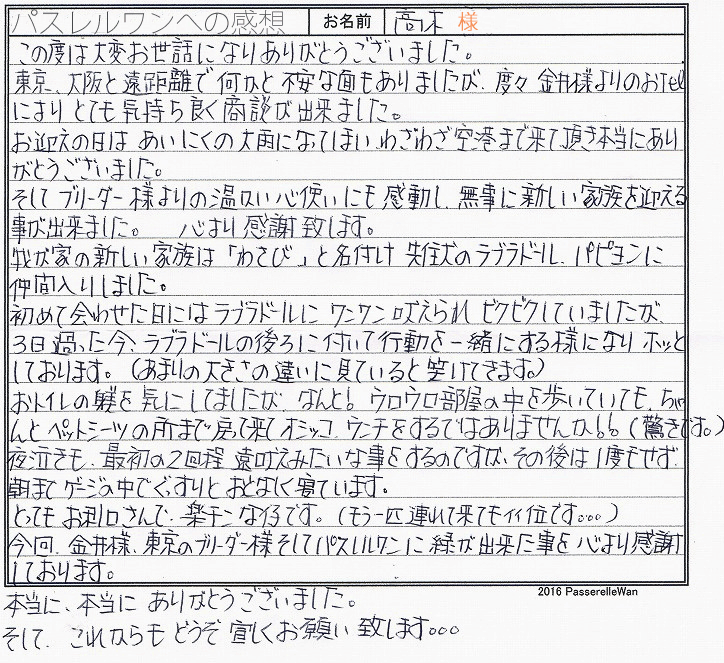 パスレルワンへの感想 お名前 高木 様
この度は大変お世話になりありがとうございました。
東京、大阪と遠距離で何かと不安な面もありましたが、度々金井様よりのお Tel
によりとても気持ち良く商談が出来ました。
お迎えの日はあいにくの大雨になってしまい、わざわざ空港まで来て頂き本当にあり
がとうございました。
そしてブリーダー様よりの温かい心使いにも感動し、無事に新しい家族を迎える
事が出来ました。 心より感謝致します。
我が家の新しい家族は「わさび」と名付け 先住犬のラブラドール、パピヨンに
仲間入りしました。
初めて会わせた日にはラブラドールにワンワン吠えられビクビクしていましたが、
3日過った今、ラブラドールの後ろに付いて行動を一緒にする様になりホッと
しております。(あまりの大きさの違いに見ていると笑けてきます。)
おトイレの躾を気にしてましたが、なんと!ウロウロ部屋の中を歩いていても、ちゃ
んとペットシーツの所まで戻って来てオシッコ、ウンチをするではありませんか!!(驚きです。)
夜泣きも、最初の2回程 遠吠えみたいな事をするのですが、その後は1度もせず、
朝までゲージの中でぐっすりとおとなしく寝ています。
とってもお利口さんで、楽チンな仔です。(もう一匹連れて来てもイイ位です。。。)
今回、金井様、東京のブリーダー様そしてパスレルワンに縁が出来た事を心より感謝
しております。
2016 PasserelleWan
本当に、本当にありがとうございました。
そして、これからもどうぞ宜しくお願い致します。。。